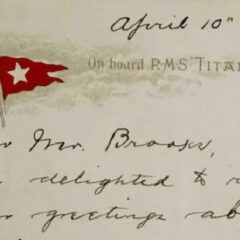 April 10"
On board R.M.S "TITA
Mr. Brooks,
delighted to
greetings